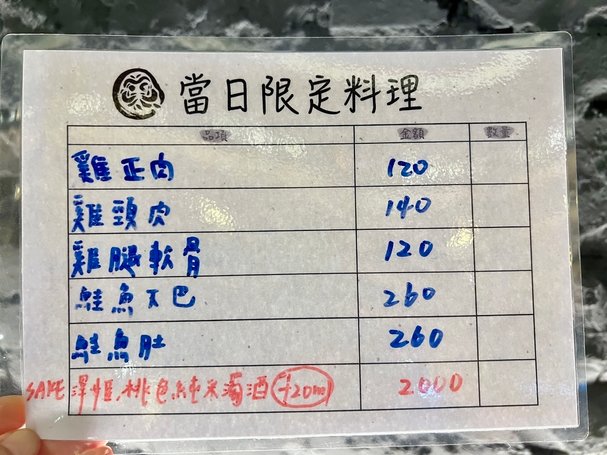 當日限定料理
品項 金額 數量
雞正肉 120
雞頸肉 140
雞腿軟骨 120
鮭魚下巴 260
鮭魚肚 260
SAKE 澤姬、桃色純米濁酒 720ml 2000